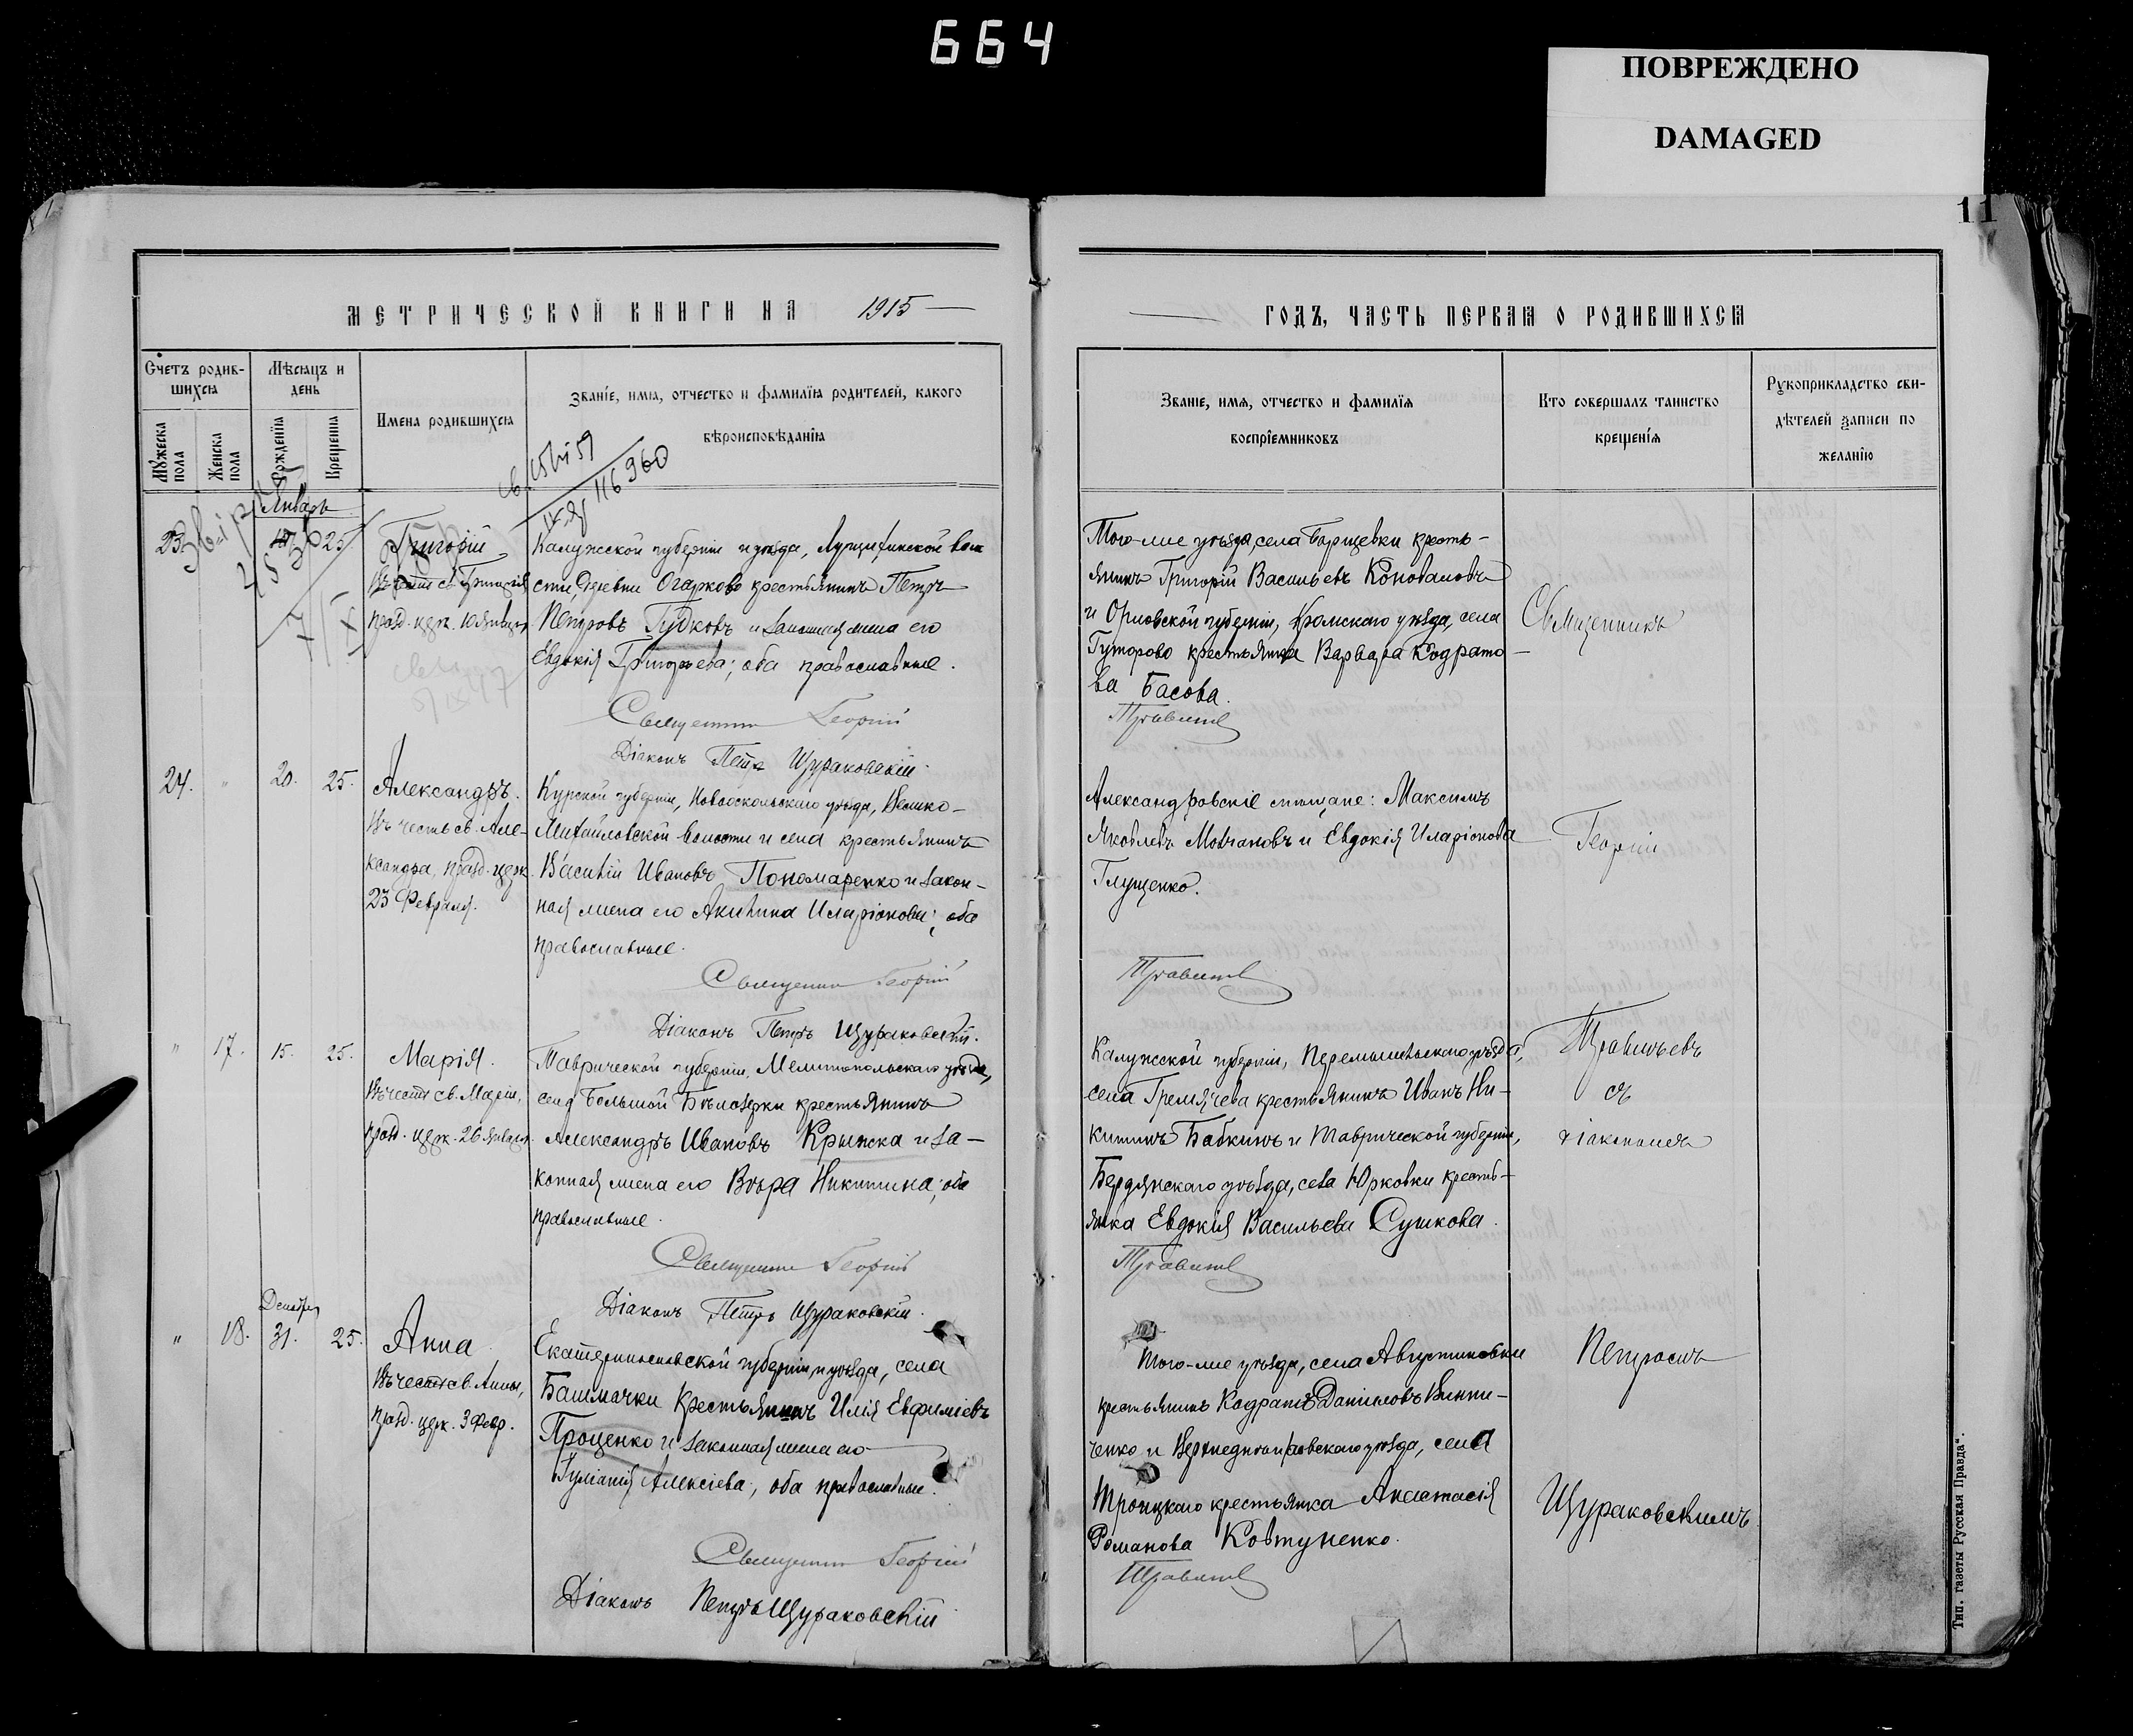 664
ПОВРЕЖДЕНО
DAMAGED
11
МЕТРИЧЕСКОЙ КНИГИ НА 1915
Счетъ родив-
шихся
Мѣсяцъ и
день
Имена родившихся
Званіе, имя, отчество и фамилія родителей, какого
вѣроисповѣданія
Мужеска
пола
Женска
пола
Рожденія
Крещенія
Январь
23
25.
Григорій
Въ честь св. Григорія
празд. церк. 10 Января.
Калужской губерніи и уѣзда, воло
сти, деревни Огарково крестьянинъ Петръ
Петровъ Гудковъ и законная жена его
Евдокія Григорьева; оба православные.
Священникъ Георгій
Діаконъ Петръ Щураковскій.
24. " 20. 25.
Александръ.
Въ честь св. Але-
ксандра, празд. церк.
23 Февраля.
Курской губерніи, Новооскольскаго уѣзда, Велико-
Михайловской волости и села крестьянинъ
Василій Ивановъ Пономаренко и закон-
ная жена его Акилина Иларіонова; оба
православные.
Священникъ Георгій
Діаконъ Петръ Щураковскій.
" 17. 15. 25.
Марія.
Въ честь св. Маріи,
празд. церк. 26 Января.
Таврической губерніи, Мелитопольскаго уѣзда,
села Большой Бѣлозерки крестьянинъ
Александръ Ивановъ Крыжска и за-
конная жена его Вѣра Никитина; оба
православные.
Священникъ Георгій
Діаконъ Петръ Щураковскій.
Декабря
" 18. 31. 25.
Анна.
Въ честь св. Анны,
празд. церк. 3 Февр.
Екатеринославской губерніи и уѣзда, села
Башмачки крестьянинъ Илія Евфиміевъ
Проценко и законная жена его
Іуліанія Алексіева; оба православные.
Священникъ Георгій
Діаконъ Петръ Щураковскій
ГОДЪ, ЧАСТЬ ПЕРВАЯ О РОДИВШИХСЯ
Званіе, имя, отчество и фамилія
воспріемниковъ
Кто совершалъ таинство
крещенія
Рукоприкладство сви-
дѣтелей записи по
желанію
Того-же уѣзда, села Борщевки кресть-
янинъ Григорій Васильевъ Коноваловъ
и Орловской губерніи, Кромскаго уѣзда, села
Гуторово крестьянка Варвара Кодрато-
ва Басова.
Травинъ
Александровскіе мѣщане: Максимъ
Яковлевъ Молчановъ и Евдокія Иларіонова
Глущенко.
Калужской губерніи, Перемышльскаго уѣзда,
села Гремячева крестьянинъ Иванъ Ни-
китинъ Бабкинъ и Таврической губерніи,
Бердянскаго уѣзда, села Юрковки кресть-
янка Евдокія Васильева Сушкова.
Того-же уѣзда, села Августиновки
крестьянинъ Кодратъ Даниловъ Винни-
ченко и Верхнеднѣпровскаго уѣзда, села
Троицкаго крестьянка Анастасія
Романова Ковтуненко.
Священникъ
Георгій
съ
діакономъ
Петромъ
Щураковскимъ.
Тип. газеты Русская Правда".